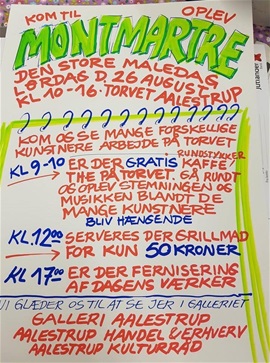 KOM TIL OPLEV
MONTMARTRE
DEN STORE MALEDAG
LØRDAG D. 26 AUGUST
KL 10-16. TORVET AALESTRUP
KOM OG SE MANGE FORSKELLIGE
KUNSTNERE ARBEJDE PÅ TORVET
RUNDSTYKKER
KL 9-10 ER DER GRATIS KAFFE
THE PÅ TORVET. GÅ RUNDT
OG OPLEV STEMNINGEN OG
MUSIKKEN BLANDT DE
MANGE KUNSTNERE
BLIV HÆNGENDE
KL. 12.00 SERVERES DER GRILLMAD
FOR KUN 50 KRONER
KL 17.00 ER DER FERNISERING
AF DAGENS VÆRKER
VI GLÆDER OS TIL AT SE JER I GALLERIET
GALLERI AALESTRUP
AALESTRUP HANDEL & ERHVERV
AALESTRUP KULTURRÅD